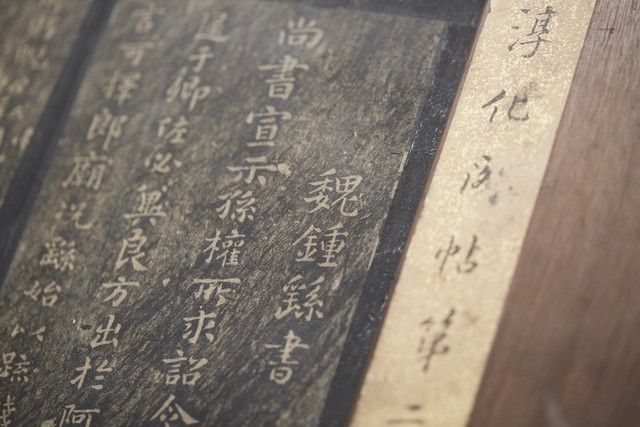 淳化閣帖第二
魏鍾繇書
尚書宣示孫權所求詔令
逮于卿佐必冀良方出於阿
言可擇郎廟況繇始以疏